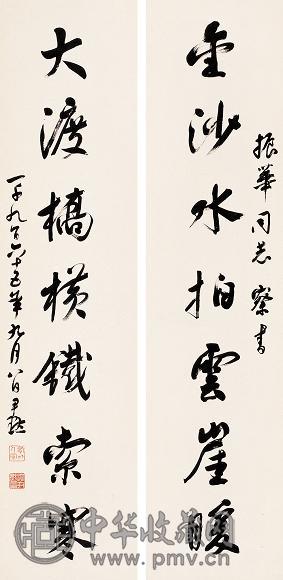 振華同志察書
金沙水拍雲崖暖
大渡橋橫鐵索寒
一千九百六十五年九月八日尹默
中华收藏网
www.pmv.cn